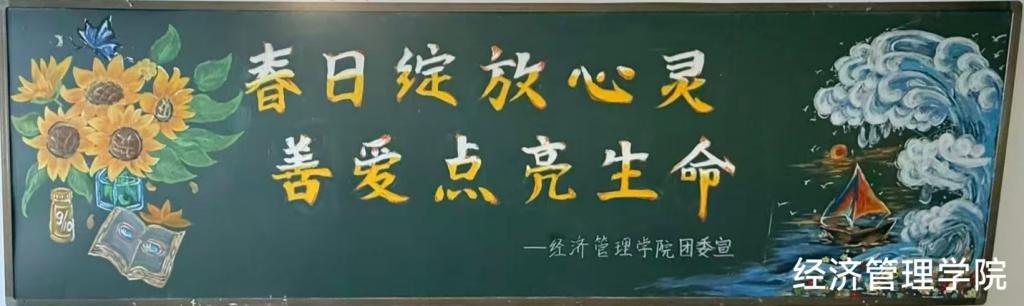 春日绽放心灵
善爱点亮生命
—经济管理学院团委宣
经济管理学院